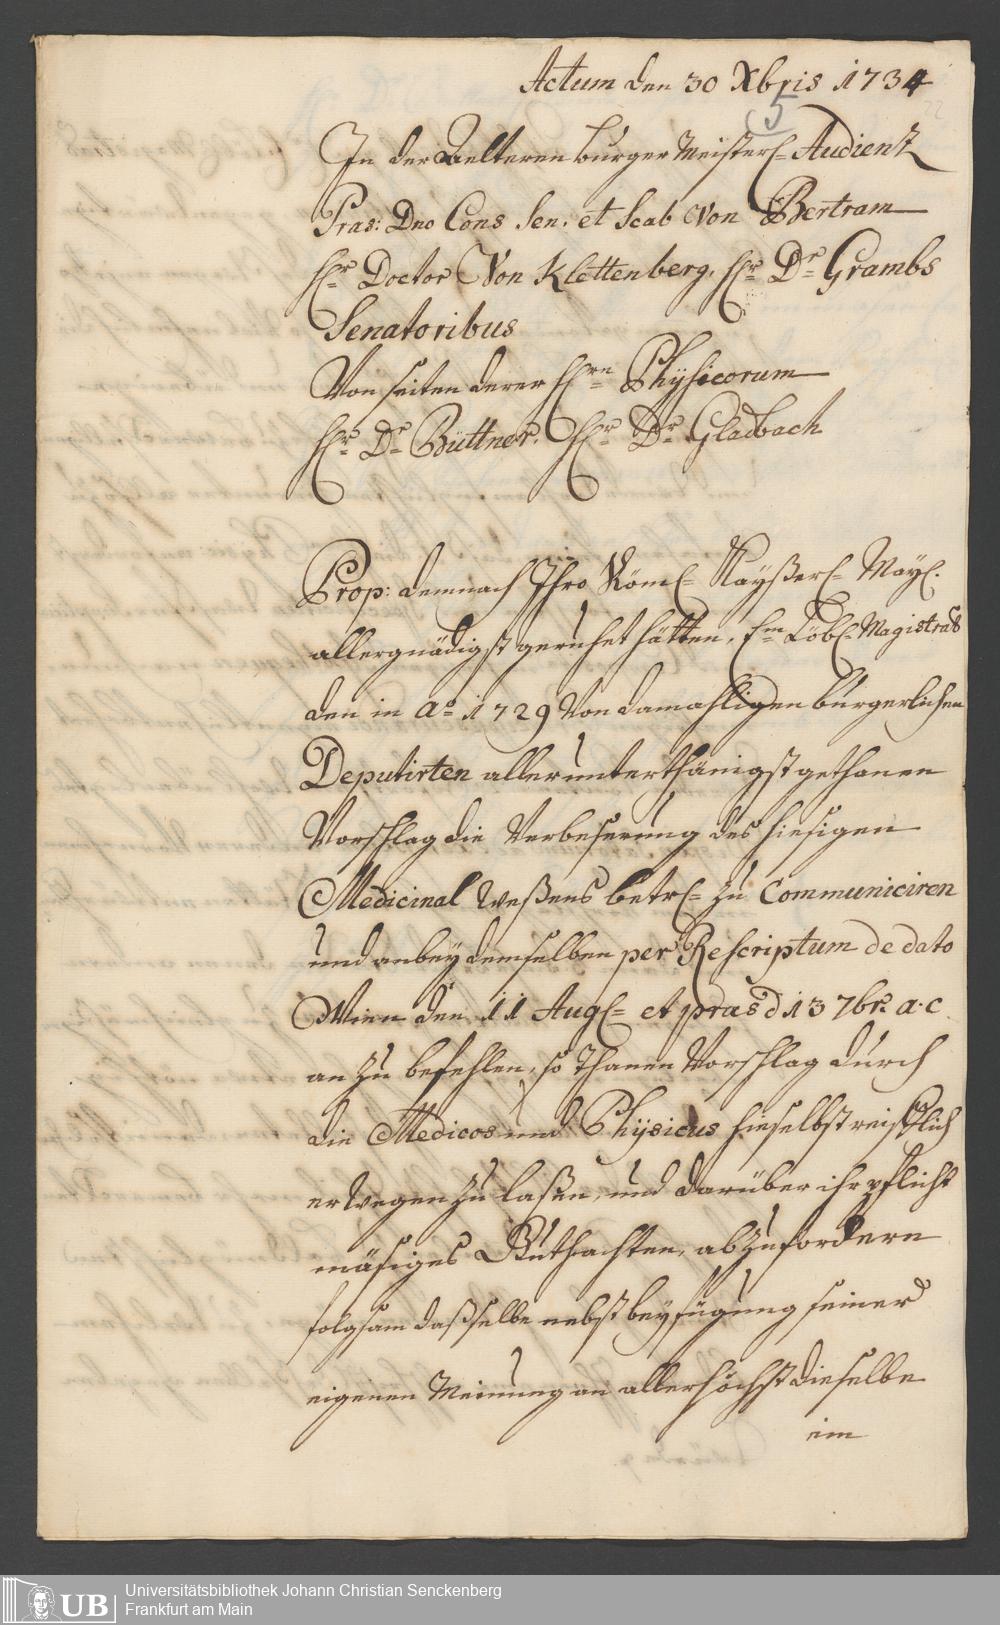 Actum den 30 Xbris 1734
5
22
In der Aelteren burger Meisterl= Audientz
Præs: Dno Cons Sen. et Scab Von Bertram
Hr= Doctor Von Klettenberg, Hr= Dr= Grambs
Senatoribus
Von seiten derer Hrn= Physicorum
Hr= Dr= Büttner, Hr= Dr= Gladbach
Prop: demnach Ihro Röml= Kayßerl= May.
allergnädigst geruhet hätten, Em Löbl= Magistrat
den in Ao 1729 Von damahligen bürgerlichen
Deputirten allerunterthänigst gethanen
Vorschlag die Verbeserung des hiesigen
Medicinal Weßens betrl= zu Communiciren
und anbey demselben per Rescriptum de dato
Wien den 11 Aug= et præs d 13 7br. a.c.
an zu befehlen, so thanen Vorschlag durch
die Medicos und Physicus hieselbst reifflich
erwegen zu laßen, und darüber ihr pflicht
mäsiges Guthachten, abzufordern
folgsam daßselbe nebst beyfügung seiner
eigenen Meinung an allerhöchst dieselbe
ein
UB
Universitätsbibliothek Johann Christian Senckenberg
Frankfurt am Main